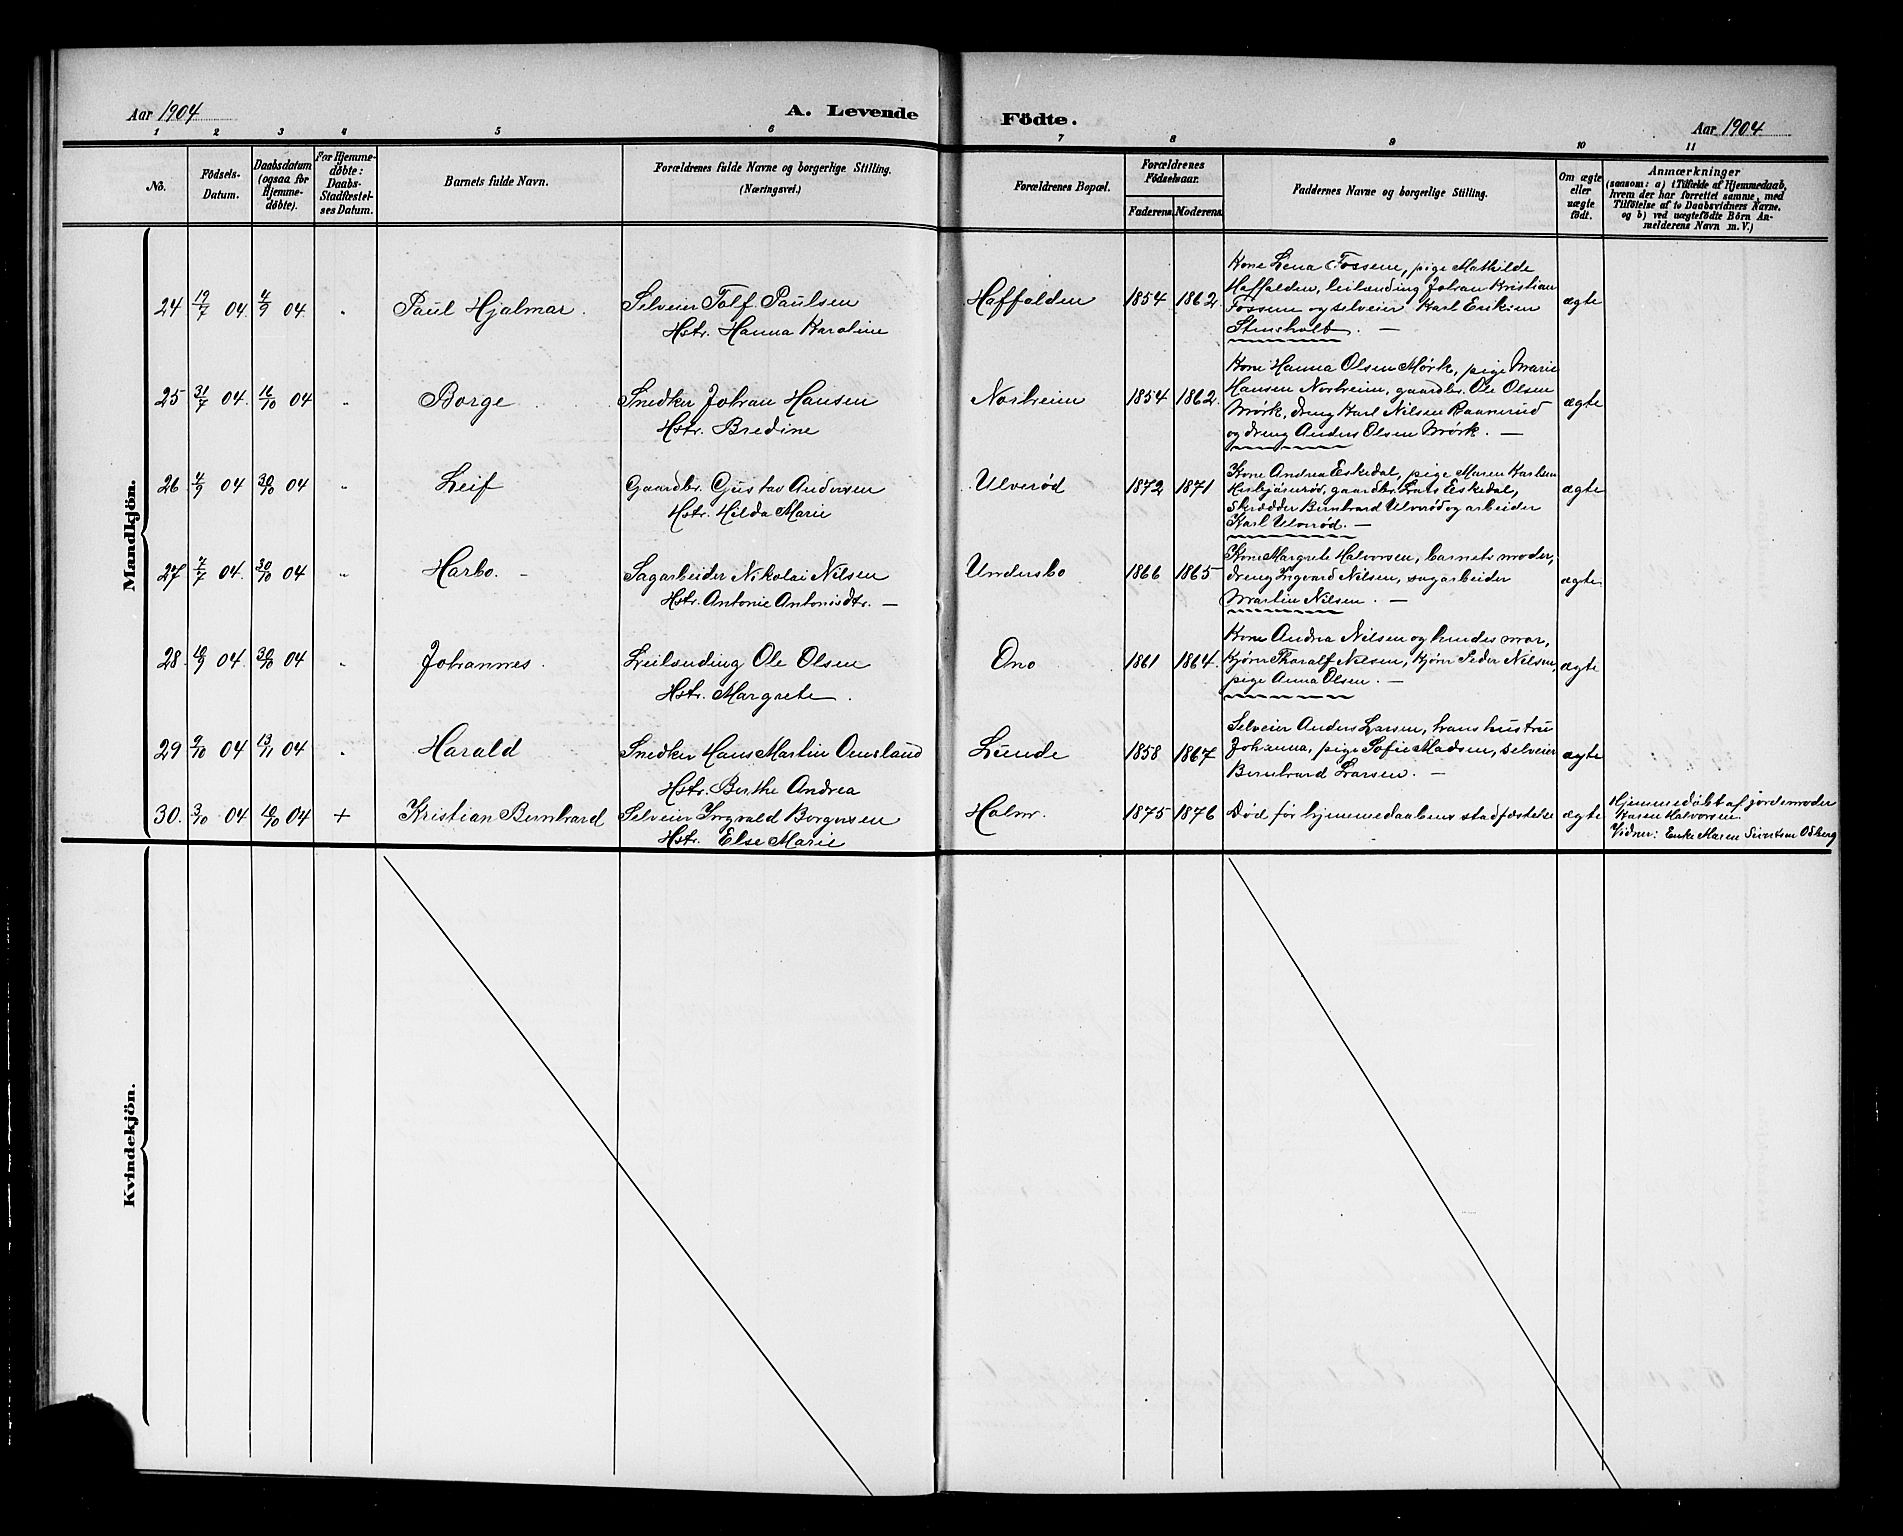 Aar 1904
A. Levende Födte.
Aar 1904
1 2 3 4 5 6 7 8 9 10 11
No.
Födsels-
Datum.
Daabsdatum
(ogsaa for
Hjemme-
döbte).
For Hjemme-
döbte:
Daabs-
Stadfæstel-
ses Datum.
Barnets fulde Navn.
Forældrenes fulde Navne og borgerlige Stilling.
(Næringsvei.)
Forældrenes Bopæl.
Forældrenes
Födselsaar.
Faderens. Moderens.
Faddernes Navne og borgerlige Stilling.
Om ægte
eller
uægte
födt.
Anmærkninger
(saasom: a) i Tilfælde af Hjemmedaab,
hvem der har forrettet samme, med
Tilföielse af to Daabsvidners Navne,
og b) ved uægtefödte Börn An-
melderens Navn m. V.)
Mandkjön.
24 19/7 04. 4/9 04 „ Paul Hjalmar. Selveier Tolf Paulsen
Hstr. Hanna Karoline
Haffalden 1854 1862.
Kone Lena Fossem, pige Mathilde
Haffalden, leilænding Johan Kristian
Fossem og selveier Karl Eriksen
Stensholt. —
ægte
25 31/7 04. 16/10 04 „ Borge Snedker Johan Hansen
Hstr. Bredine
Norheim 1854 1862.
Kone Hanna Olsen Mørk, pige Marie
Hansen Norheim, gaardbr. Ole Olsen
Mørk, dreng Karl Nilsen Raanerud
og dreng Anders Olsen Mørk. —
ægte
26 4/9 04 30/10 04 „ Leif Gaardbr. Gustav Andersen
Hstr. Hilda Marie
Ulverød 1872 1871
Kone Andrea Eskedal, pige Maren Karlsen
gaardbr. Lars Eskedal,
Skrædder Bernhard Ulverød og arbeider
Karl Ulverød. —
ægte
27 7/7 04. 30/10 04 „ Harbo. - Sagarbeider Nikolai Nilsen
Hstr. Antonie Antonisdtr. —
Undersbo 1866 1865
Kone Margrete Halvorsen, barnets moder,
dreng Ingvard Nilsen, sagarbeider
Martin Nilsen. —
ægte
28. 10/9 04. 30/10 04 „ Johannes. Leilænding Ole Olsen
Hstr. Margrete.
Ono 1861 1864.
Kone Andrea Nilsen og hendes mor,
Kjører Tharalf Nilsen, Kjører Peder Nilsen,
pige Anna Olsen. —
ægte
29 9/10 04 13/11 04 „ Harald Snedker Hans Martin Omsland
Hstr. Berthe Andrea
Lunde 1858 1867
Selveier Anders Larsen, hans hustru
Johanna, pige Sofie Madsen, selveier
Bernhard Larsen. —
ægte
30. 3/10 04 10/10 04 + Kristian Bernhard Selveier Ingvald Borgersen
Hstr. Else Marie
Holmr. 1875 1876 Død før hjemmedaabens stadfæstelse ægte
Hjemmedøbt af jordemoder
Karen Halvorsen.
Vidner: Enke Maren Sivertsen Odberg
Kvindekjön.